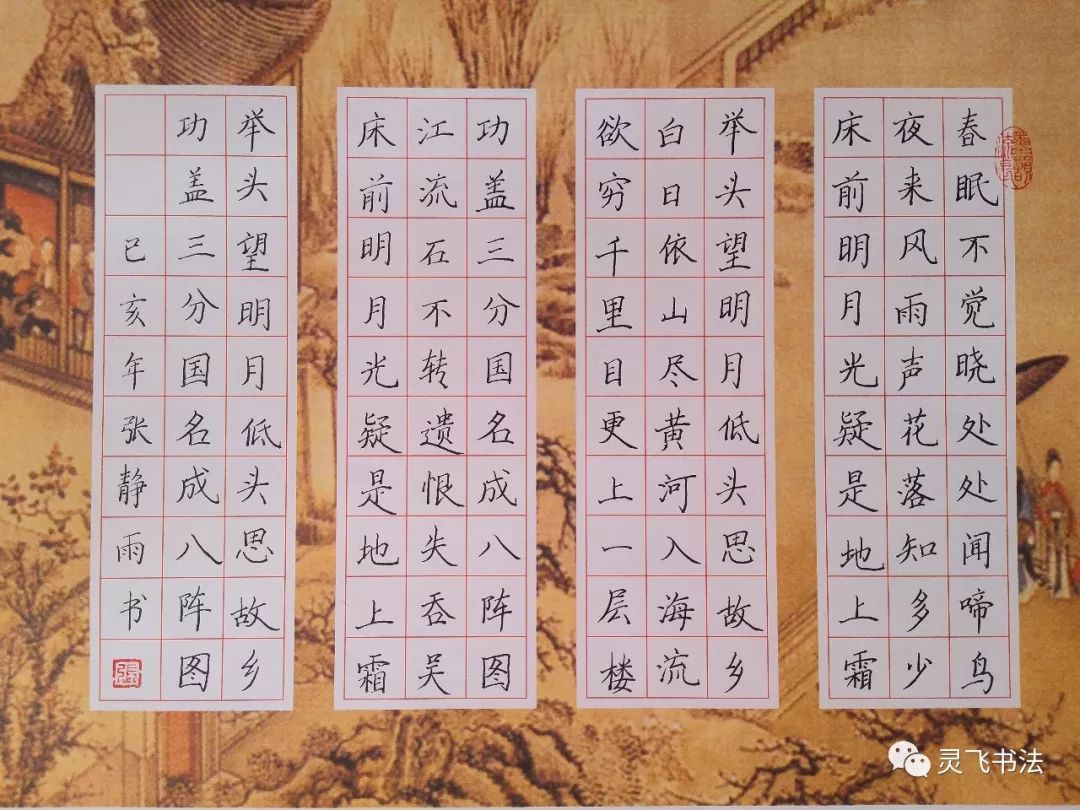 春眠不觉晓处处闻啼鸟
夜来风雨声花落知多少
床前明月光疑是地上霜
举头望明月低头思故乡
白日依山尽黄河入海流
欲穷千里目更上一层楼
功盖三分国名成八阵图
江流石不转遗恨失吞吴
床前明月光疑是地上霜
举头望明月低头思故乡
功盖三分国名成八阵图
已亥年张静雨书
張
灵飞书法